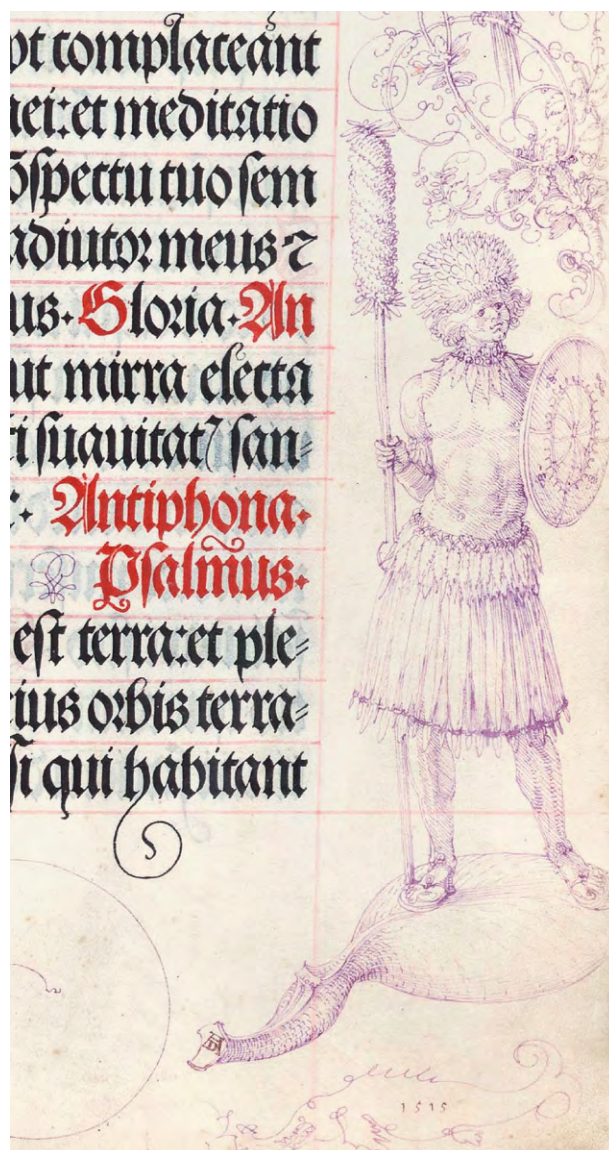 pt complaceant
mei: et meditatio
õspectu tuo sem
adiutor meus ⁊
us. Gloria. An
ut mirra electa
ti suauitat? san-
Antiphona.
Psalmus.
est terra: et ple-
cius orbis terra-
si qui habitant
AD
1515